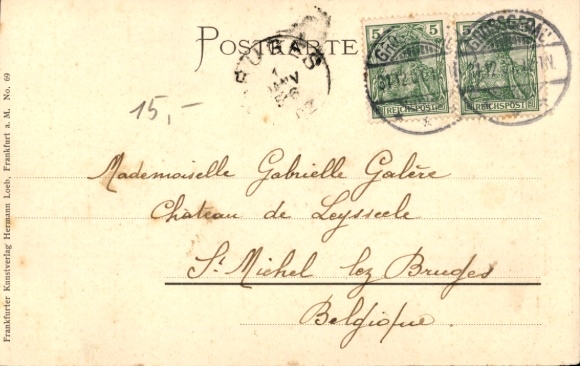 POSTKARTE
5 5
REICHSPOST REICHSPOST
BRUGES
1
JANV
15,-
Mademoiselle Gabrielle Galère
Château de Leysseele
St Michel lez Bruges
Belgique.
Frankfurter Kunstverlag Hermann Loeb, Frankfurt a. M. No. 69